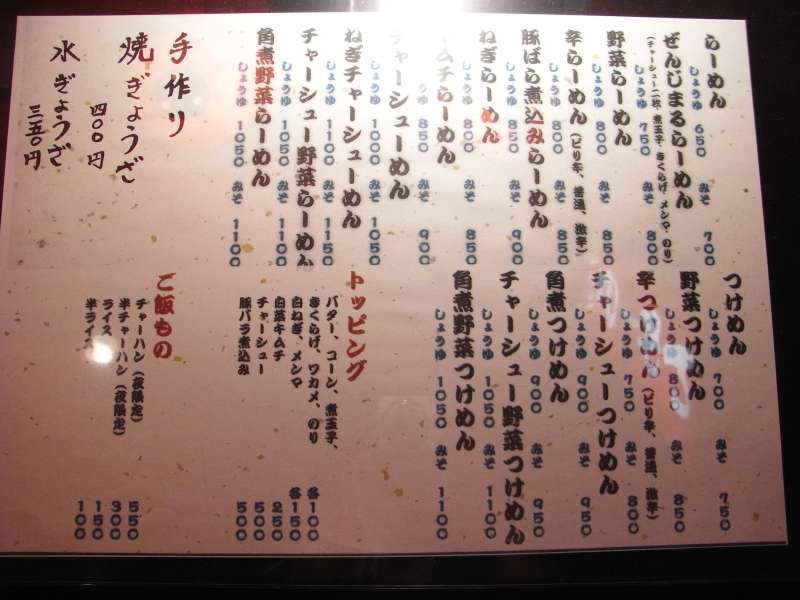 らーめん
しょうゆ 650 みそ 700
ぜんじまるらーめん
(チャーシュー二枚、煮玉子、きくらげ、メンマ、のり)
しょうゆ 750 みそ 800
野菜らーめん
しょうゆ 800 みそ 850
辛らーめん(ピリ辛、普通、激辛)
しょうゆ 800 みそ 850
豚ばら煮込みらーめん
しょうゆ 850 みそ 900
ねぎらーめん
しょうゆ 800 みそ 850
ムチらーめん
850 みそ 900
チャーシューめん
しょうゆ 1000 みそ 1050
ねぎチャーシューめん
しょうゆ 1100 みそ 1150
チャーシュー野菜らーめん
しょうゆ 1050 みそ 1100
角煮野菜らーめん
しょうゆ 1050 みそ 1100
手作り
焼ぎょうざ
四〇〇円
水ぎょうざ
三五〇円
つけめん
しょうゆ 700 みそ 750
野菜つけめん
しょうゆ 800 みそ 850
辛つけめん(ピリ辛、普通、激辛)
しょうゆ 750 みそ 800
チャーシューつけめん
しょうゆ 900 みそ 950
角煮つけめん
しょうゆ 900 みそ 950
チャーシュー野菜つけめん
しょうゆ 1050 みそ 1100
角煮野菜つけめん
しょうゆ 1050 みそ 1100
トッピング
バター、コーン、煮玉子、
きくらげ、ワカメ、のり 各100
白ねぎ、メンマ 各150
白菜キムチ 250
チャーシュー 500
豚バラ煮込み 500
ご飯もの
チャーハン(夜限定) 550
半チャーハン(夜限定) 300
ライス 150
半ライス 100